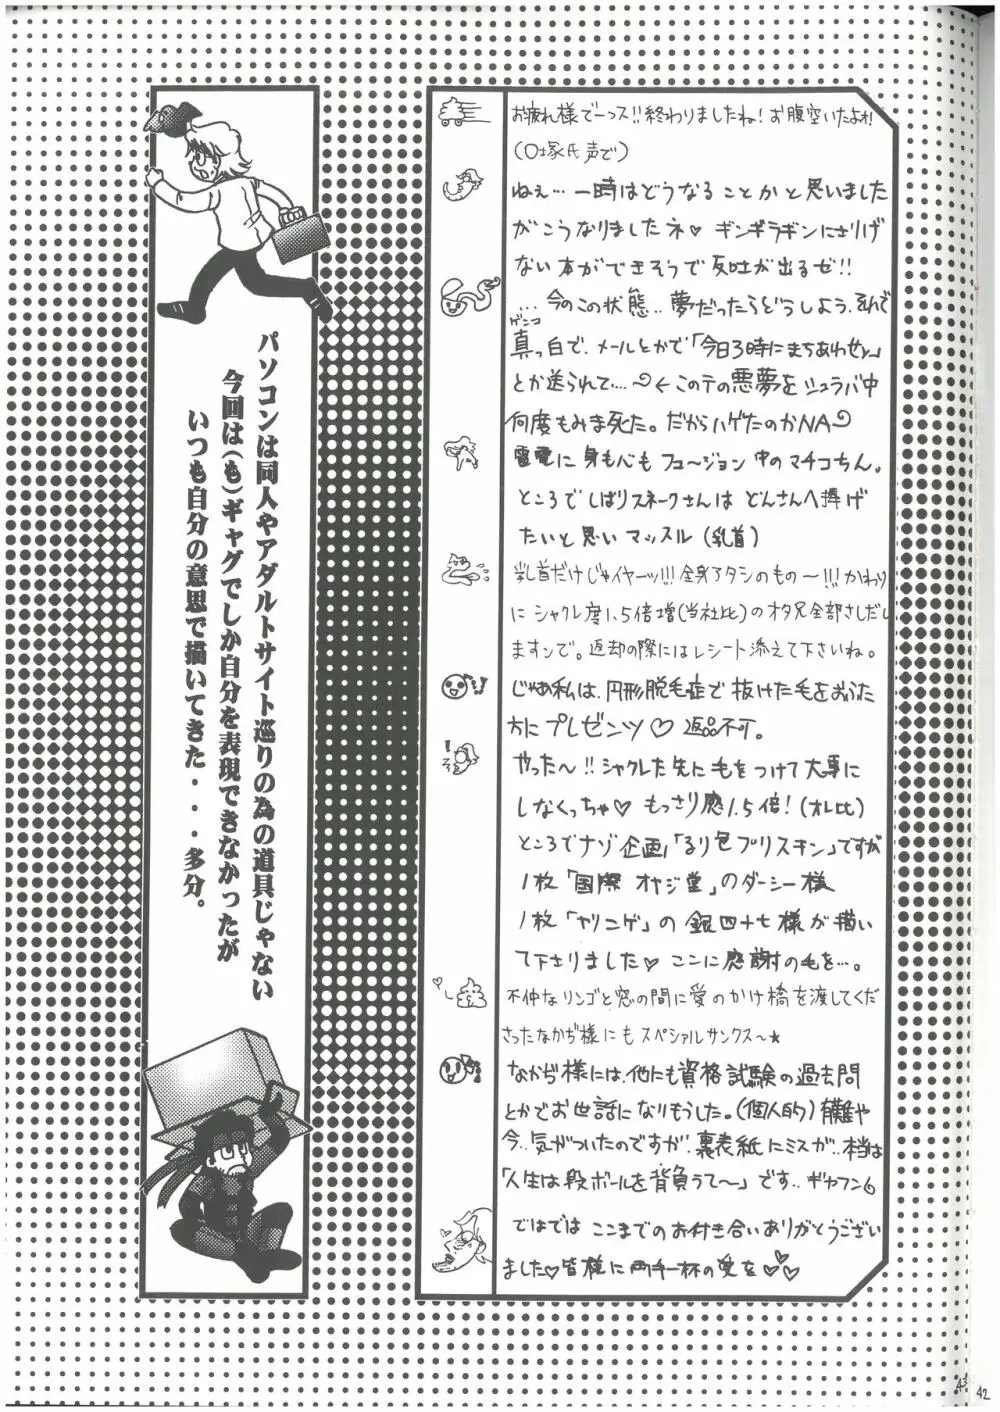 お疲れ様でーっス!!終わりましたね!お腹空いたよォ!
(口塚氏声で)
ねぇ…一時はどうなることかと思いました
がこうなりましたネ♡ ギンギラギンにさりげ
ない本ができそうで反吐が出るぜ!!
…今のこの状態‥夢だったらどうしよう、それで
ゲンコ
真っ白で、メールとかで「今日3時にまちあわせ」
とか送られて‥‥ ←このテの悪夢をシュラバ中
何度もみま死た。だからハゲたのかNA
雷電に身も心もフュ〜ジョン中のマチコちん。
ところでしばりスネークさんは どんさんへ捧げ
たいと思いマッスル(乳首)
乳首だけじゃイヤーッ!!!全身アタシのもの〜!!!かわり
に シャクレ度1.5倍増(当社比)のオタ兄全部さしだし
ますンで。返却の際にはレシート添えて下さいね。
じゃあ私は、円形脱毛症で抜けた毛をおうた
方にプレゼンツ♡返品不可。
やった〜!!シャクレた先に毛をつけて大事に
しなくっちゃ♡ もっさり感1.5倍!(オレ比)
ところでナゾ企画「るり色プリスキン」ですが
1枚「国際オヤジ堂」のダーシー様
1枚「ヤリニゲ」の銀四十七様が描い
て下さりました♡ここに感謝の毛を…。
不仲なリンゴと窓の間に愛のかけ橋を渡してくだ
さったなかぢ様にもスペシャルサンクス〜★
なかぢ様には、他にも資格試験の過去問
とかでお世話になりもうした。(個人的)有難や
今‥気がついたのですが裏表紙にミスが‥本当は
「人生は段ボールを背負うて〜」です‥ギャフン
ではでは ここまでのお付き合いありがとうござい
ました♡皆様に両手一杯の愛を♡♡♡
パソコンは同人やアダルトサイト巡りの為の道具じゃない
今回は(も)ギャグでしか自分を表現できなかったが
いつも自分の意思で描いてきた・・・多分。
43
42